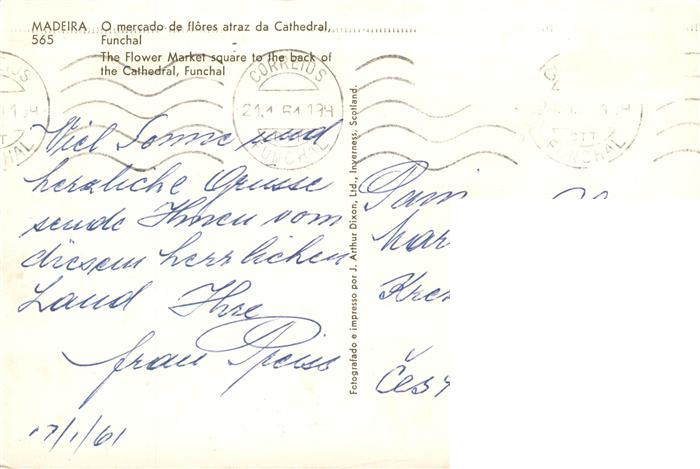 MADEIRA O mercado de flôres atraz da Cathedral,
565 Funchal
The Flower Market square to the back of
the Cathedral, Funchal
CORREIOS
21.1.61.1
FUNCHAL
Viel Sonne und
herzliche Grüsse
sende Ihnen vom
diesem herrlichen
Land Ihre
frau Preiss
17/1/61
Fotografado e impresso por J. Arthur Dixon, Ltd., Inverness, Scotland.
CTT
FUNCHAL